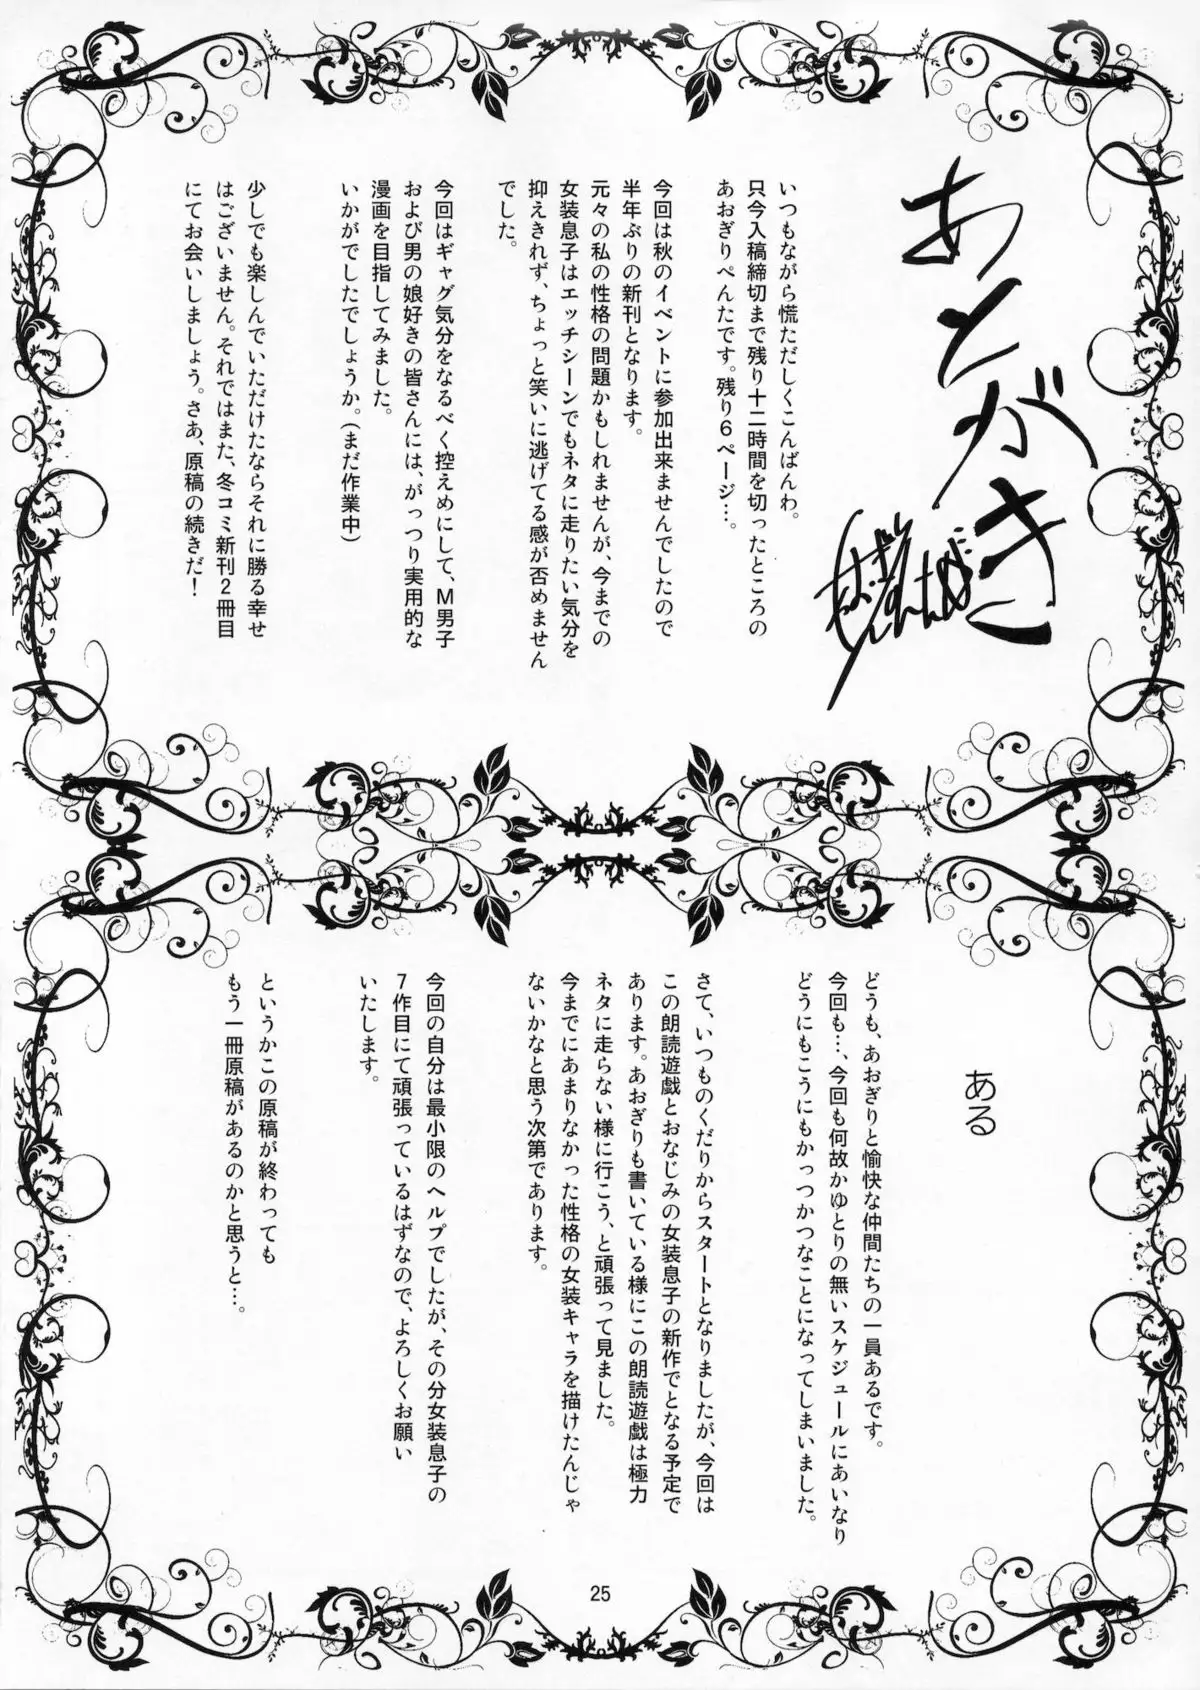 あとがき
あおぎりぺんた
いつもながら慌ただしくこんばんわ。
只今入稿締切まで残り十二時間を切ったところの
あおぎりぺんたです。残り６ページ…。
今回は秋のイベントに参加出来ませんでしたので
半年ぶりの新刊となります。
元々の私の性格の問題かもしれませんが、今までの
女装息子はエッチシーンでもネタに走りたい気分を
抑えきれず、ちょっと笑いに逃げてる感が否めません
でした。
今回はギャグ気分をなるべく控えめにして、Ｍ男子
および男の娘好きの皆さんには、がっつり実用的な
漫画を目指してみました。
いかがでしたでしょうか。(まだ作業中)
少しでも楽しんでいただけたならそれに勝る幸せ
はございません。それではまた、冬コミ新刊２冊目
にてお会いしましょう。さあ、原稿の続きだ！
ある
どうも、あおぎりと愉快な仲間たちの一員あるです。
今回も…、今回も何故かゆとりの無いスケジュールにあいなり
どうにもこうにもかっつかつなことになってしまいました。
さて、いつものくだりからスタートとなりましたが、今回は
この朗読遊戯とおなじみの女装息子の新作でとなる予定で
あります。あおぎりも書いている様にこの朗読遊戯は極力
ネタに走らない様に行こう、と頑張って見ました。
今までにあまりなかった性格の女装キャラを描けたんじゃ
ないかなと思う次第であります。
今回の自分は最小限のヘルプでしたが、その分女装息子の
７作目にて頑張っているはずなので、よろしくお願い
いたします。
というかこの原稿が終わっても
もう一冊原稿があるのかと思うと…。
25